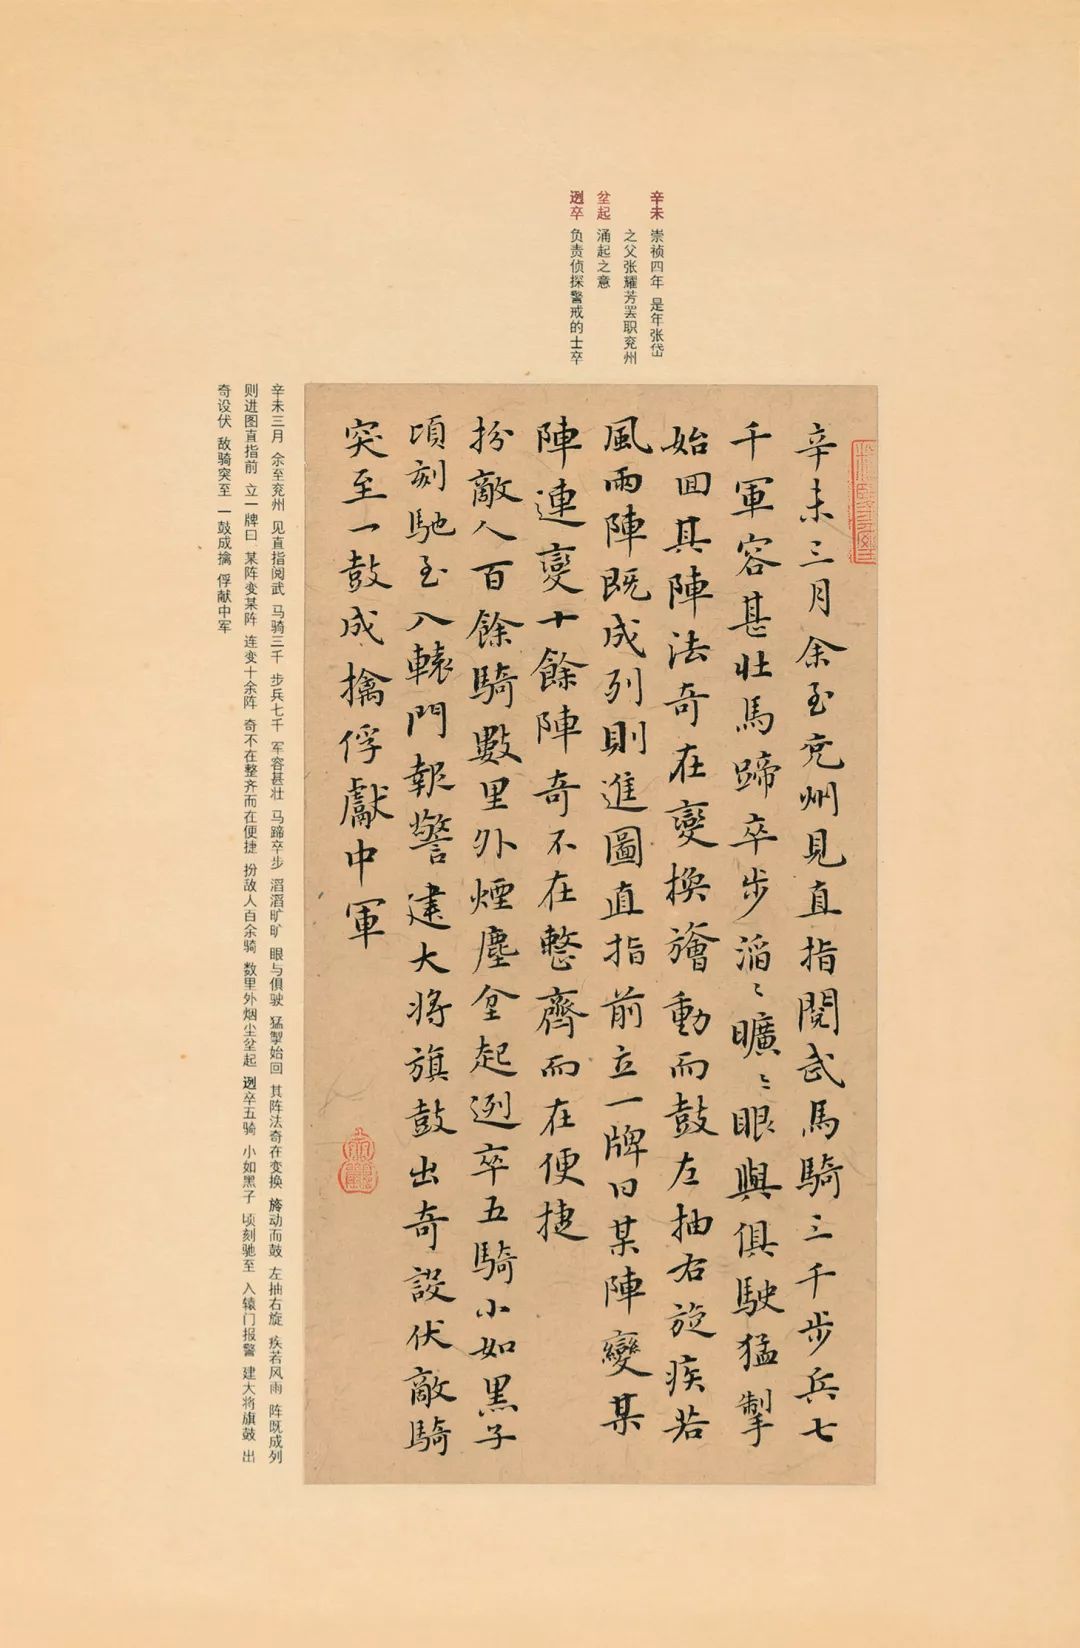 辛未 崇祯四年 是年张岱
之父张耀芳罢职兖州
坌起 涌起之意
迾卒 负责侦探警戒的士卒
辛未三月余至兖州見直指閱武馬騎三千步兵七
千軍容甚壯馬蹄卒步滔〻曠〻眼與俱駛猛掣
始回其陣法奇在變換旝動而鼓左抽右旋疾若
風雨陣既成列則進圖直指前立一牌曰某陣變某
陣連變十餘陣奇不在整齊而在便捷
扮敵人百餘騎數里外煙塵坌起迾卒五騎小如黑子
頃刻馳至入轅門報警建大將旗鼓出奇設伏敵騎
突至一鼓成擒俘獻中軍
辛未三月 余至兖州 见直指阅武 马骑三千 步兵七千 军容甚壮 马蹄卒步 滔滔旷旷 眼与俱驶 猛掣始回 其阵法奇在变换 旝动而鼓 左抽右旋 疾若风雨 阵既成列
则进图直指前 立一牌曰 某阵变某阵 连变十余阵 奇不在整齐而在便捷 扮敌人百余骑 数里外烟尘坌起 迾卒五骑 小如黑子 顷刻驰至 入辕门报警 建大将旗鼓 出
奇设伏 敌骑突至 一鼓成擒 俘献中军